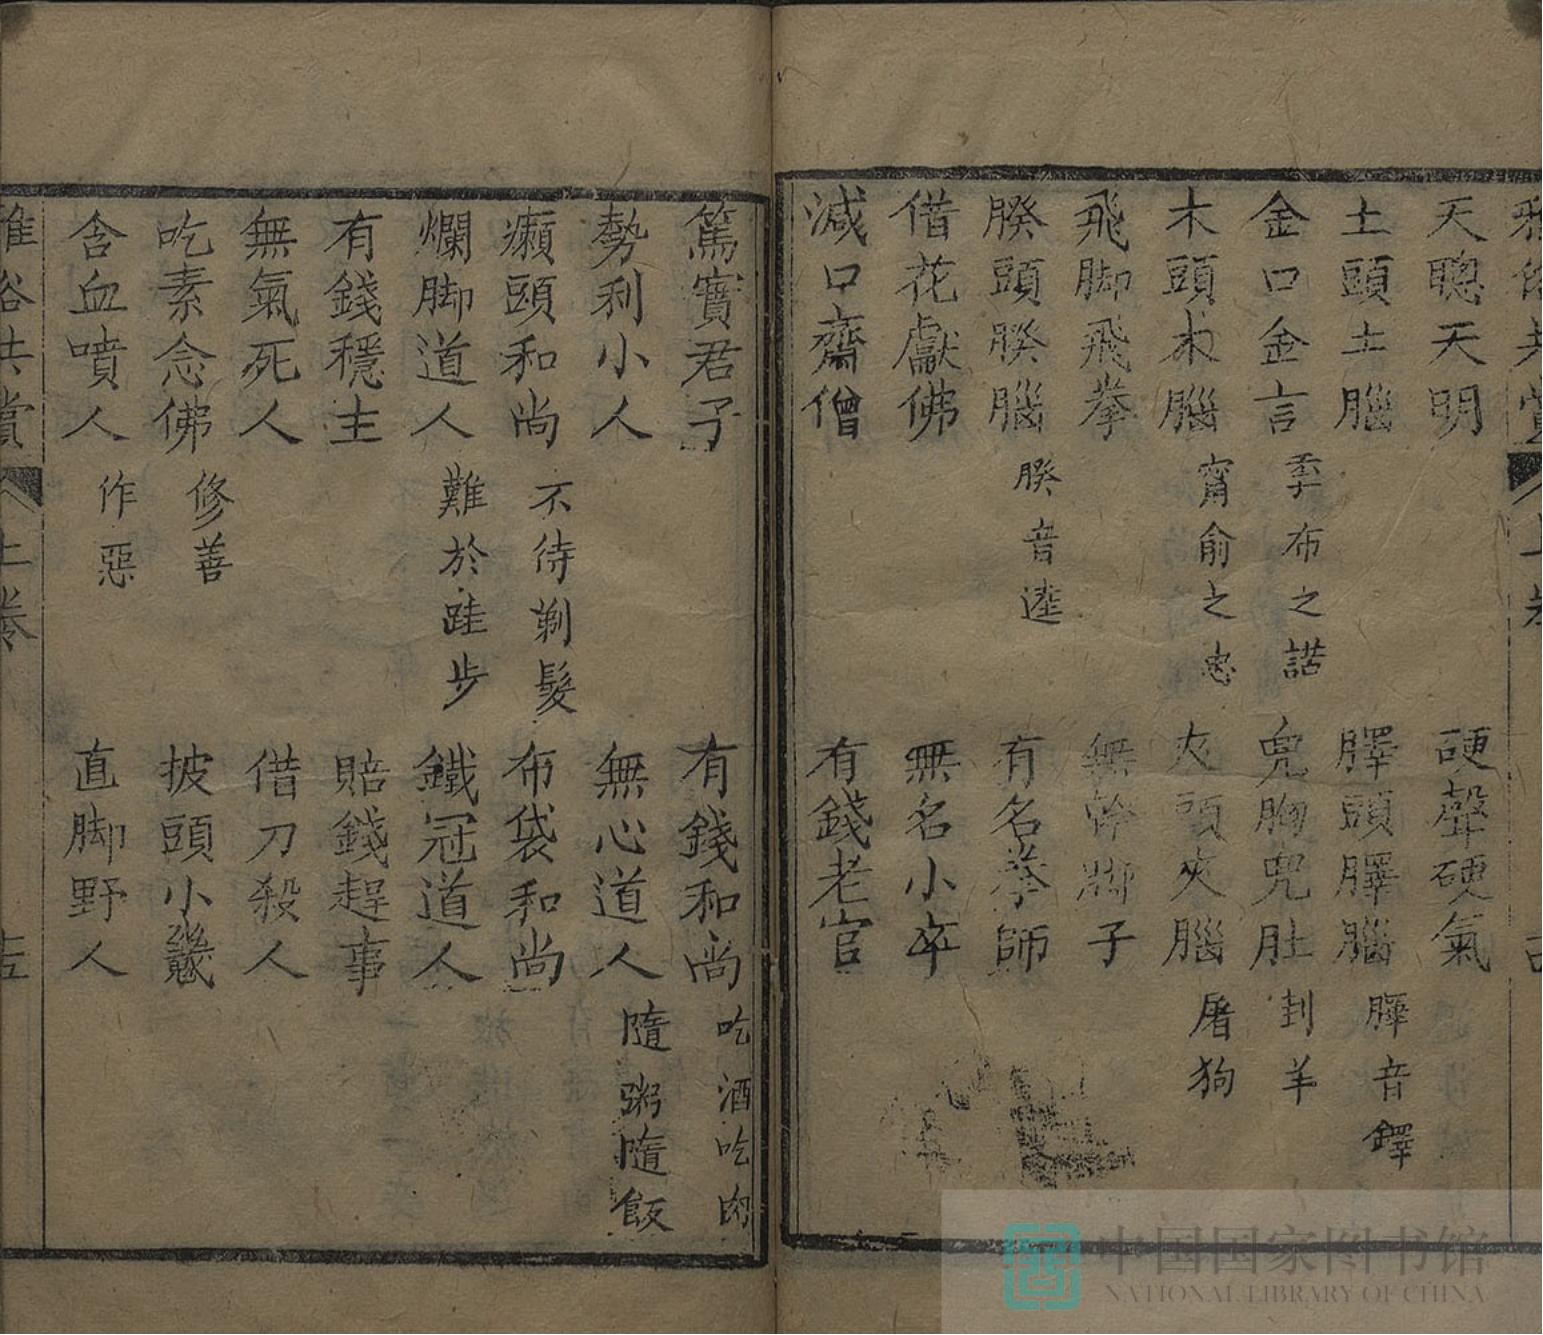 天聰天明　硬聲硬氣
土頭土腦　䐾頭䐾腦　䐾音鐸
金口金言　季布之諾　兜胸兜肚　刲羊
木頭木腦　甯俞之忠　夾頭夾腦　屠狗
飛脚飛拳　無幹脚子
睽頭睽腦　有名拳師
借花獻佛　無名小卒
減口齋僧　有錢老官
篤實君子　有錢和尚　吃酒吃肉
勢利小人　無心道人　隨粥隨飯
癩頭和尚　不待剃髮　布袋和尚
爛脚道人　難於跬步　鐵冠道人
有錢穩主　賠錢趕事
無氣死人　借刀殺人
吃素念佛　修善　披頭小
含血噴人　作惡　直脚野人
雅俗共賞　上卷
中国国家图书馆
NATIONAL LIBRARY OF CHINA